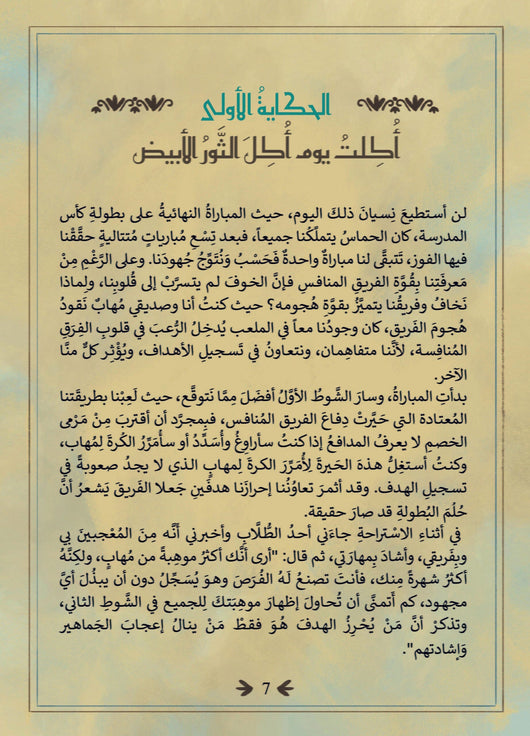 الحكايةُ الأولى
أُكِلتُ يوم أُكِلَ الثَّورُ الأبيض
لن أستطيعَ نِسيانَ ذلكَ اليوم، حيث المباراةُ النهائيةُ على بطولةِ كأس
المدرسة، كان الحماسُ يتملّكُنا جميعاً، فبعد تِسْعِ مُبارياتٍ متتاليةٍ حقَّقْنا
فيها الفوز، تَتبقَّى لنا مباراةٌ واحدةٌ فَحَسْبُ وَنُتَوِّجُ جُهودَنا. وعلى الرَّغْمِ مِنْ
مَعرفَتِنا بِقُوَّةِ الفريقِ المنافسِ فإنَّ الخوفَ لم يتسرَّبْ إلى قُلوبِنا، ولِماذا
نَخافُ وفريقُنا يتميَّزُ بقوَّةِ هُجومه؟ حيث كنتُ أنا وصديقي مُهابٌ نَقودُ
هُجومَ الفَريق، كان وجودُنا معاً في الملعب يُدخِلُ الرُّعبَ في قلوبِ الفِرَقِ
المُنافِسة، لأنَّنا متفاهِمان، ونتعاونُ في تَسجيلِ الأهداف، ويُؤْثِر كلٌّ منَّا
الآخر.
بدأتِ المباراةُ، وسارَ الشَّوطُ الأوَّلُ أفضَلَ مِمَّا نَتوقَّع، حيث لَعِبْنا بطريقَتنا
المُعتادة التي حَيَّرتْ دِفاعَ الفريق المُنافس، فبِمجرَّد أن أقتربَ مِنْ مَرْمى
الخصمِ لا يعرفُ المدافعُ إذا كنتُ سأراوِغُ وأُسَدِّدُ أو سأُمَرِّرُ الكُرةَ لِمُهاب،
وكنتُ أستغِلُّ هذهَ الحَيرةَ لِأُمَرِّرَ الكرةَ لِمهابٍ الذي لا يجدُ صعوبةً في
تسجيلِ الهدف. وقد أثمرَ تعاوُنُنا إحرازَنا هدفَينِ جَعلا الفَريقَ يَشعرُ أنَّ
حُلْمَ البُطولةِ قد صارَ حقيقة.
في أثناءِ الاسْتراحةِ جاءَني أحدُ الطُّلَّابِ وأخبرني أنَّه مِنَ المُعْجبينَ بي
وبِفَريقي، وأشادَ بِمهارَتِي، ثم قال: "أرى أنَّك أكثرُ موهِبةً من مُهاب، ولكِنَّهُ
أكثرُ شهرةً مِنك، فأنتَ تصنعُ لَهُ الفُرَصَ وهوَ يُسَجِّلُ دون أن يبذُلَ أيَّ
مجهود، كم أتمنَّى أن تُحاولَ إظهارَ موهِبَتكَ لِلجميع في الشَّوطِ الثاني،
وتذكرْ أنَّ مَنْ يُحْرِزُ الهدفَ هُوَ فقطْ مَنْ ينالُ إعجابَ الجَماهير
وَإشادتهم".
7